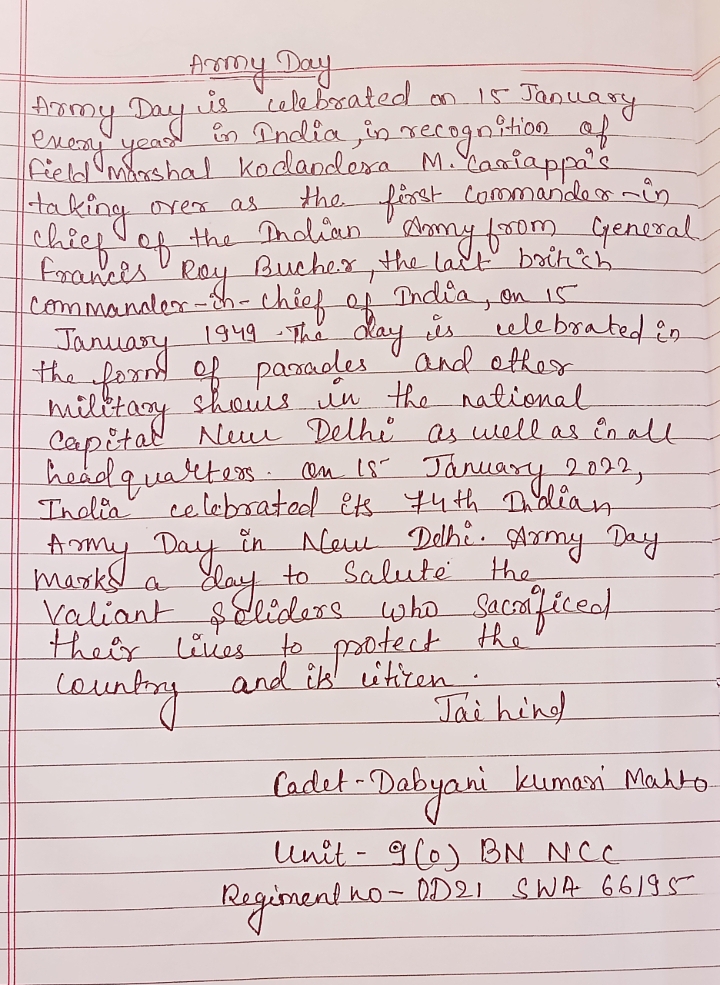 Army Day
Army Day is celebrated on 15 January
every year in India, in recognition of
field Marshal Kodandera M. Cariappa's
taking over as the first commander-in
chief of the Indian Army from General
Francis Roy Bucher, the last british
commander-in-chief of India, on 15
January 1949. The day is celebrated in
the form of parades and other
military shows in the national
capital New Delhi as well as in all
headquarters. on 15 January 2022,
India celebrated its 74th Indian
Army Day in New Delhi. Army Day
marks a day to salute the
valiant soliders who sacrificed
their lives to protect the
country and its citizen.
Jai hind
Cadet - Dabyani kumari Mahto
Unit - 9(0) BN NCC
Regiment no - OD21 SWA 66195